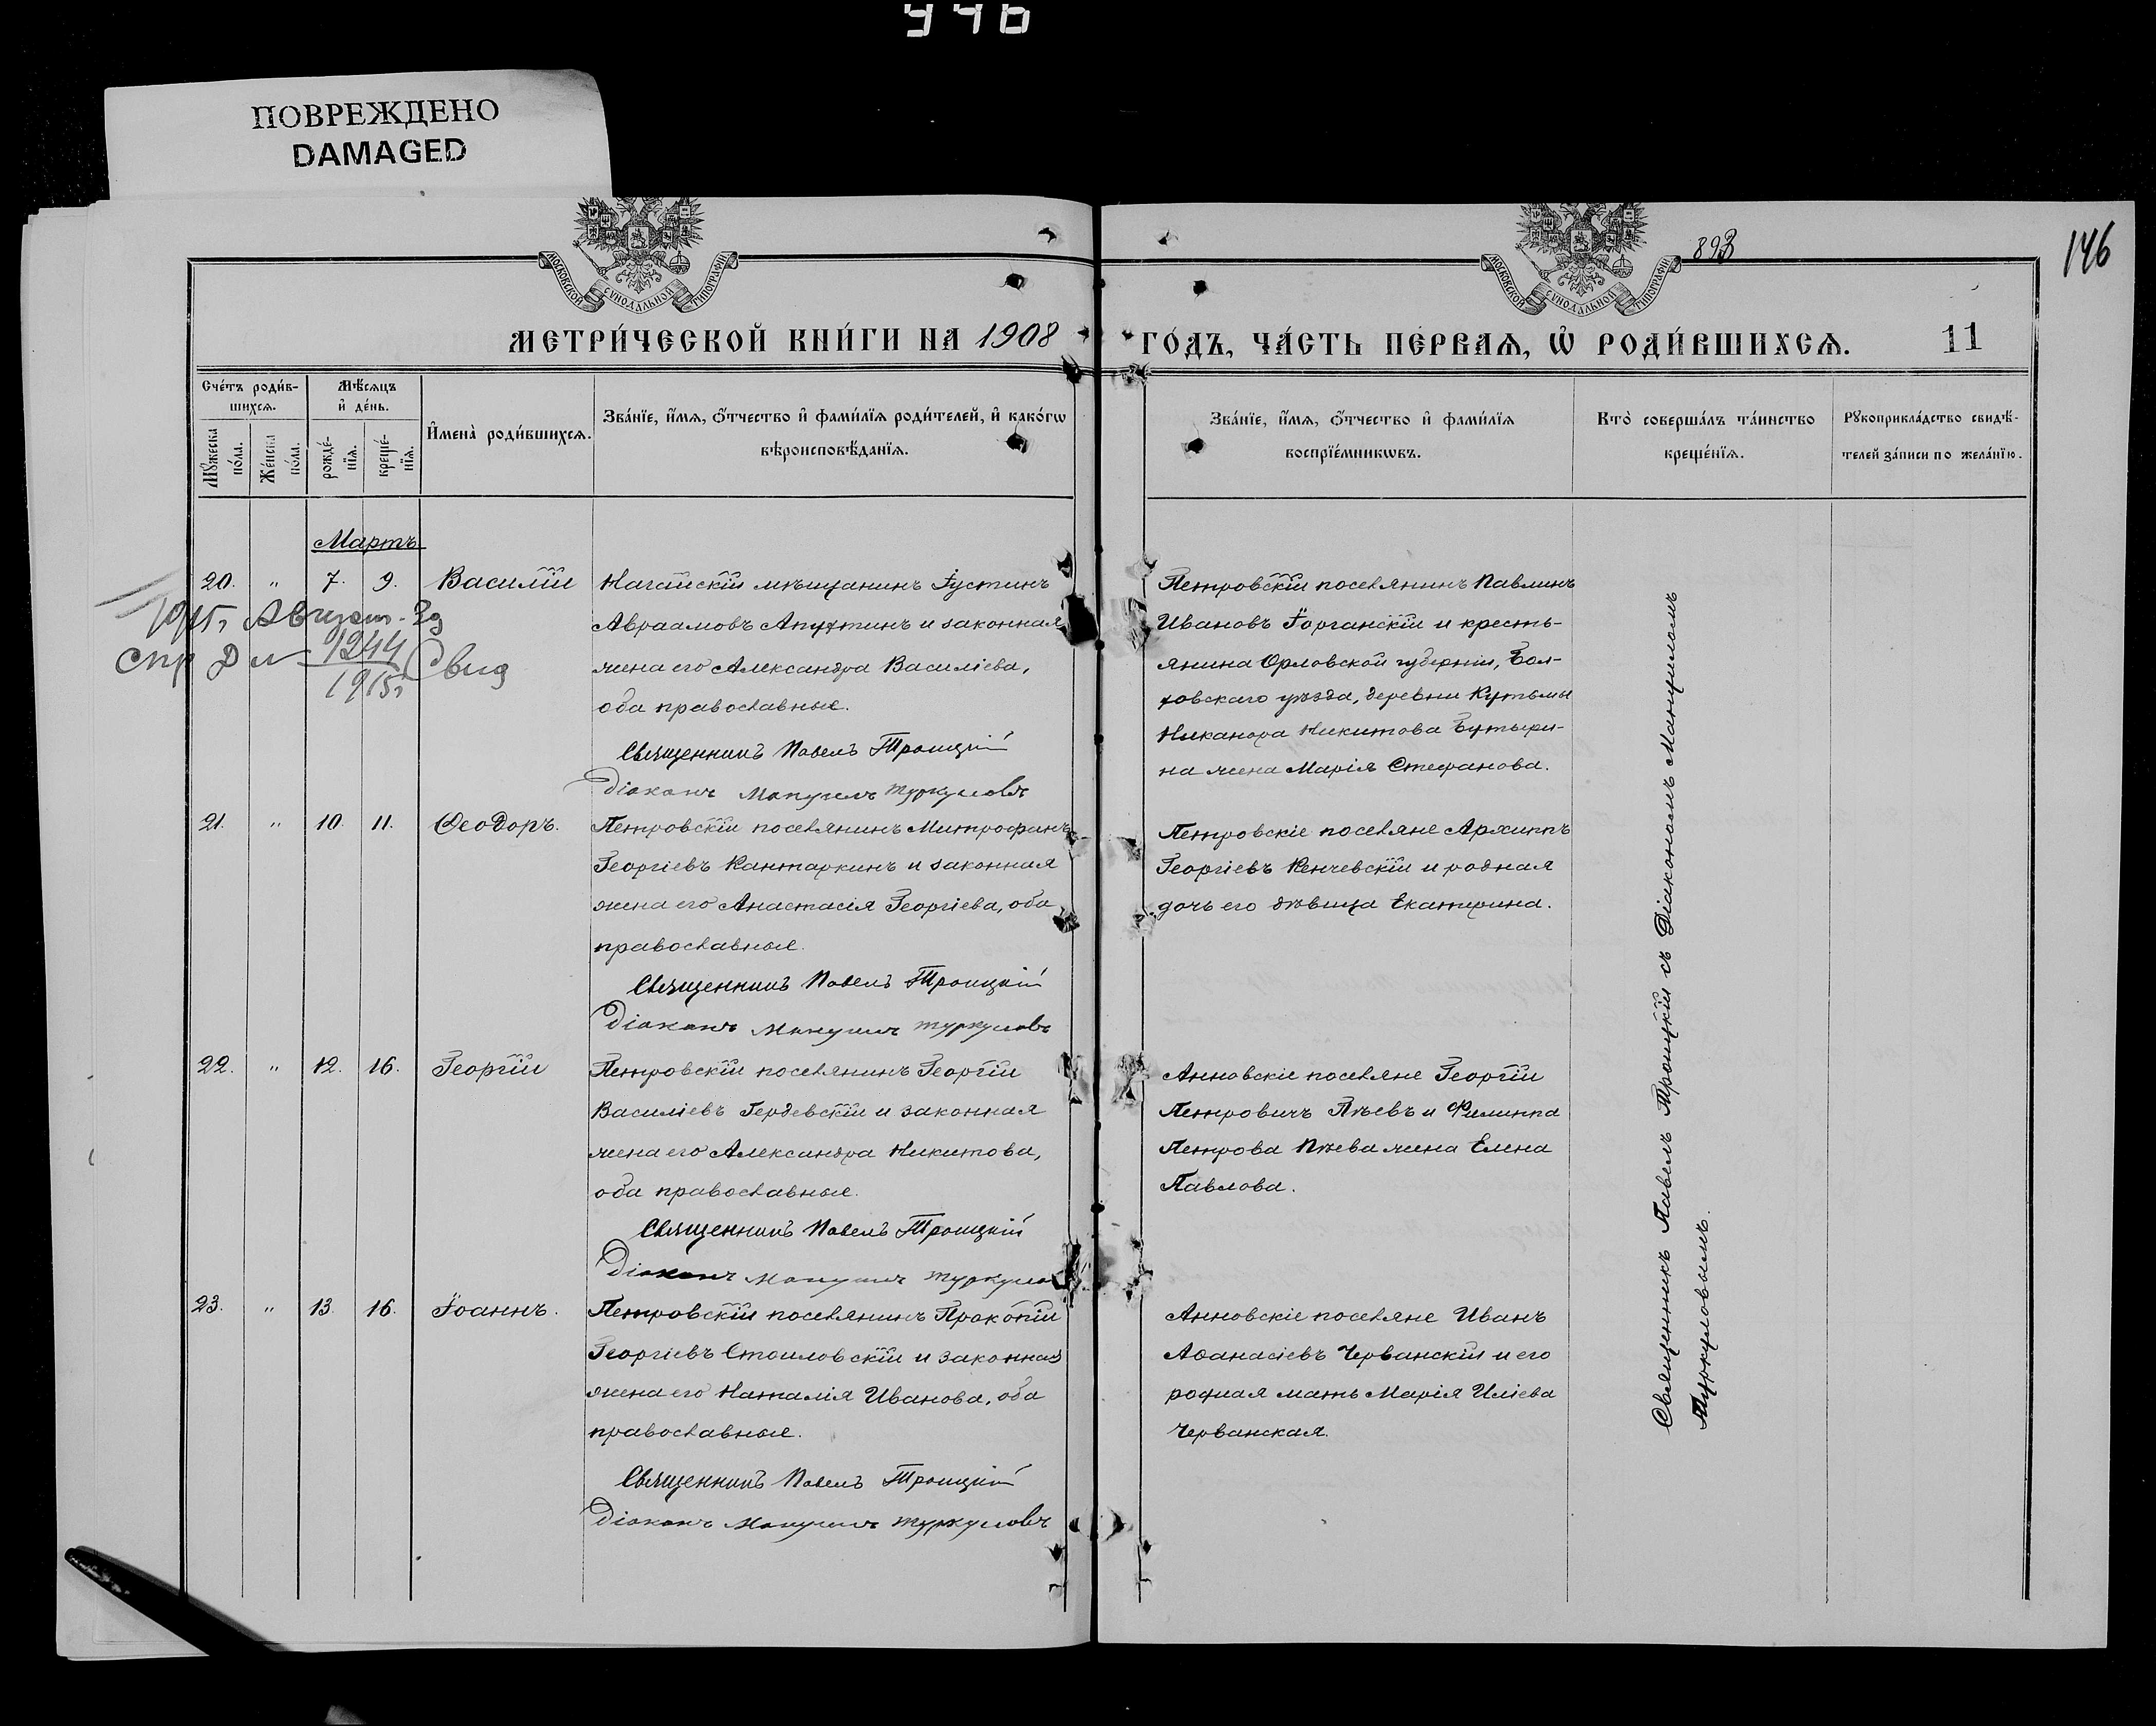 946
ПОВРЕЖДЕНО
DAMAGED
МОСКОВСКОЙ СѴНОДАЛЬНОЙ ТИПОГРАФІИ
МОСКОВСКОЙ СѴНОДАЛЬНОЙ ТИПОГРАФІИ
893
146
МЕТРИ́ЧЕСКОЙ КНИ́ГИ НА 1908
ГО́ДЪ, ЧА́СТЬ ПЕ́РВАѦ, Ѡ҆ РОДИ́ВШИХСѦ.
11
Сче́тъ роди́в-
шихсѧ.
Мѣ́сѧцъ
и҆ де́нь.
Мꙋ́жеска
по́ла.
Же́нска
по́ла.
рожде́-
нїѧ.
креще́-
нїѧ.
И҆мена̀ роди́вшихсѧ.
Зва́нїе, и҆́мѧ, ѻ҆́тчество и҆ фами́лїѧ роди́телей, и҆ како́гѡ
вѣроисповѣ́данїѧ.
Зва́нїе, и҆́мѧ, ѻ҆́тчество и҆ фами́лїѧ
воспрїе́мникѡвъ.
Кто̀ соверша́лъ та́инство
креще́нїѧ.
Рꙋкоприкла́дство свидѣ́-
телей за́писи по жела́нїю.
Мартъ
20. " 7. 9. Василій
Нагайскій мѣщанинъ Іустинъ
Авраамовъ Апухтинъ и законная
жена его Александра Василіева,
оба православные.
Священникъ Павелъ Троицкій
Діаконъ Мануилъ Туркуловъ
Петровскій поселянинъ Павлинъ
Ивановъ Іорганскій и кресть-
янина Орловской губерніи, Бол-
ховскаго уѣзда, деревни Кутьмы
Никанора Никитова Бутыри-
на жена Марія Стефанова.
Август
Спр № 1244 Свид
1915г
21. " 10. 11. Ѳеодоръ.
Петровскій поселянинъ Митрофанъ
Георгіевъ Кантаркинъ и законная
жена его Анастасія Георгіева, оба
православные.
Священникъ Павелъ Троицкій
Діаконъ Мануилъ Туркуловъ
Петровскіе поселяне Архиппъ
Георгіевъ Кенчевскій и родная
дочь его дѣвица Екатерина.
22. " 12. 16. Георгій
Петровскій поселянинъ Георгій
Василіевъ Гердевскій и законная
жена его Александра Никитова,
оба православные.
Священникъ Павелъ Троицкій
Діаконъ Мануилъ Туркулов
Анновскіе поселяне Георгій
Петровичъ Пѣевъ и Филиппа
Петрова Пѣева жена Елена
Павлова.
23. " 13. 16. Іоаннъ.
Петровскій поселянинъ Прокопій
Георгіевъ Стоиловскій и законная
жена его Наталія Иванова, оба
православные.
Священникъ Павелъ Троицкій
Діаконъ Мануилъ Туркуловъ
Анновскіе поселяне Иванъ
Аѳанасіевъ Черванскій и его
родная мать Марія Иліева
Черванская.
Священникъ Павелъ Троицкій съ Діакономъ Мануиломъ
Туркуловымъ.